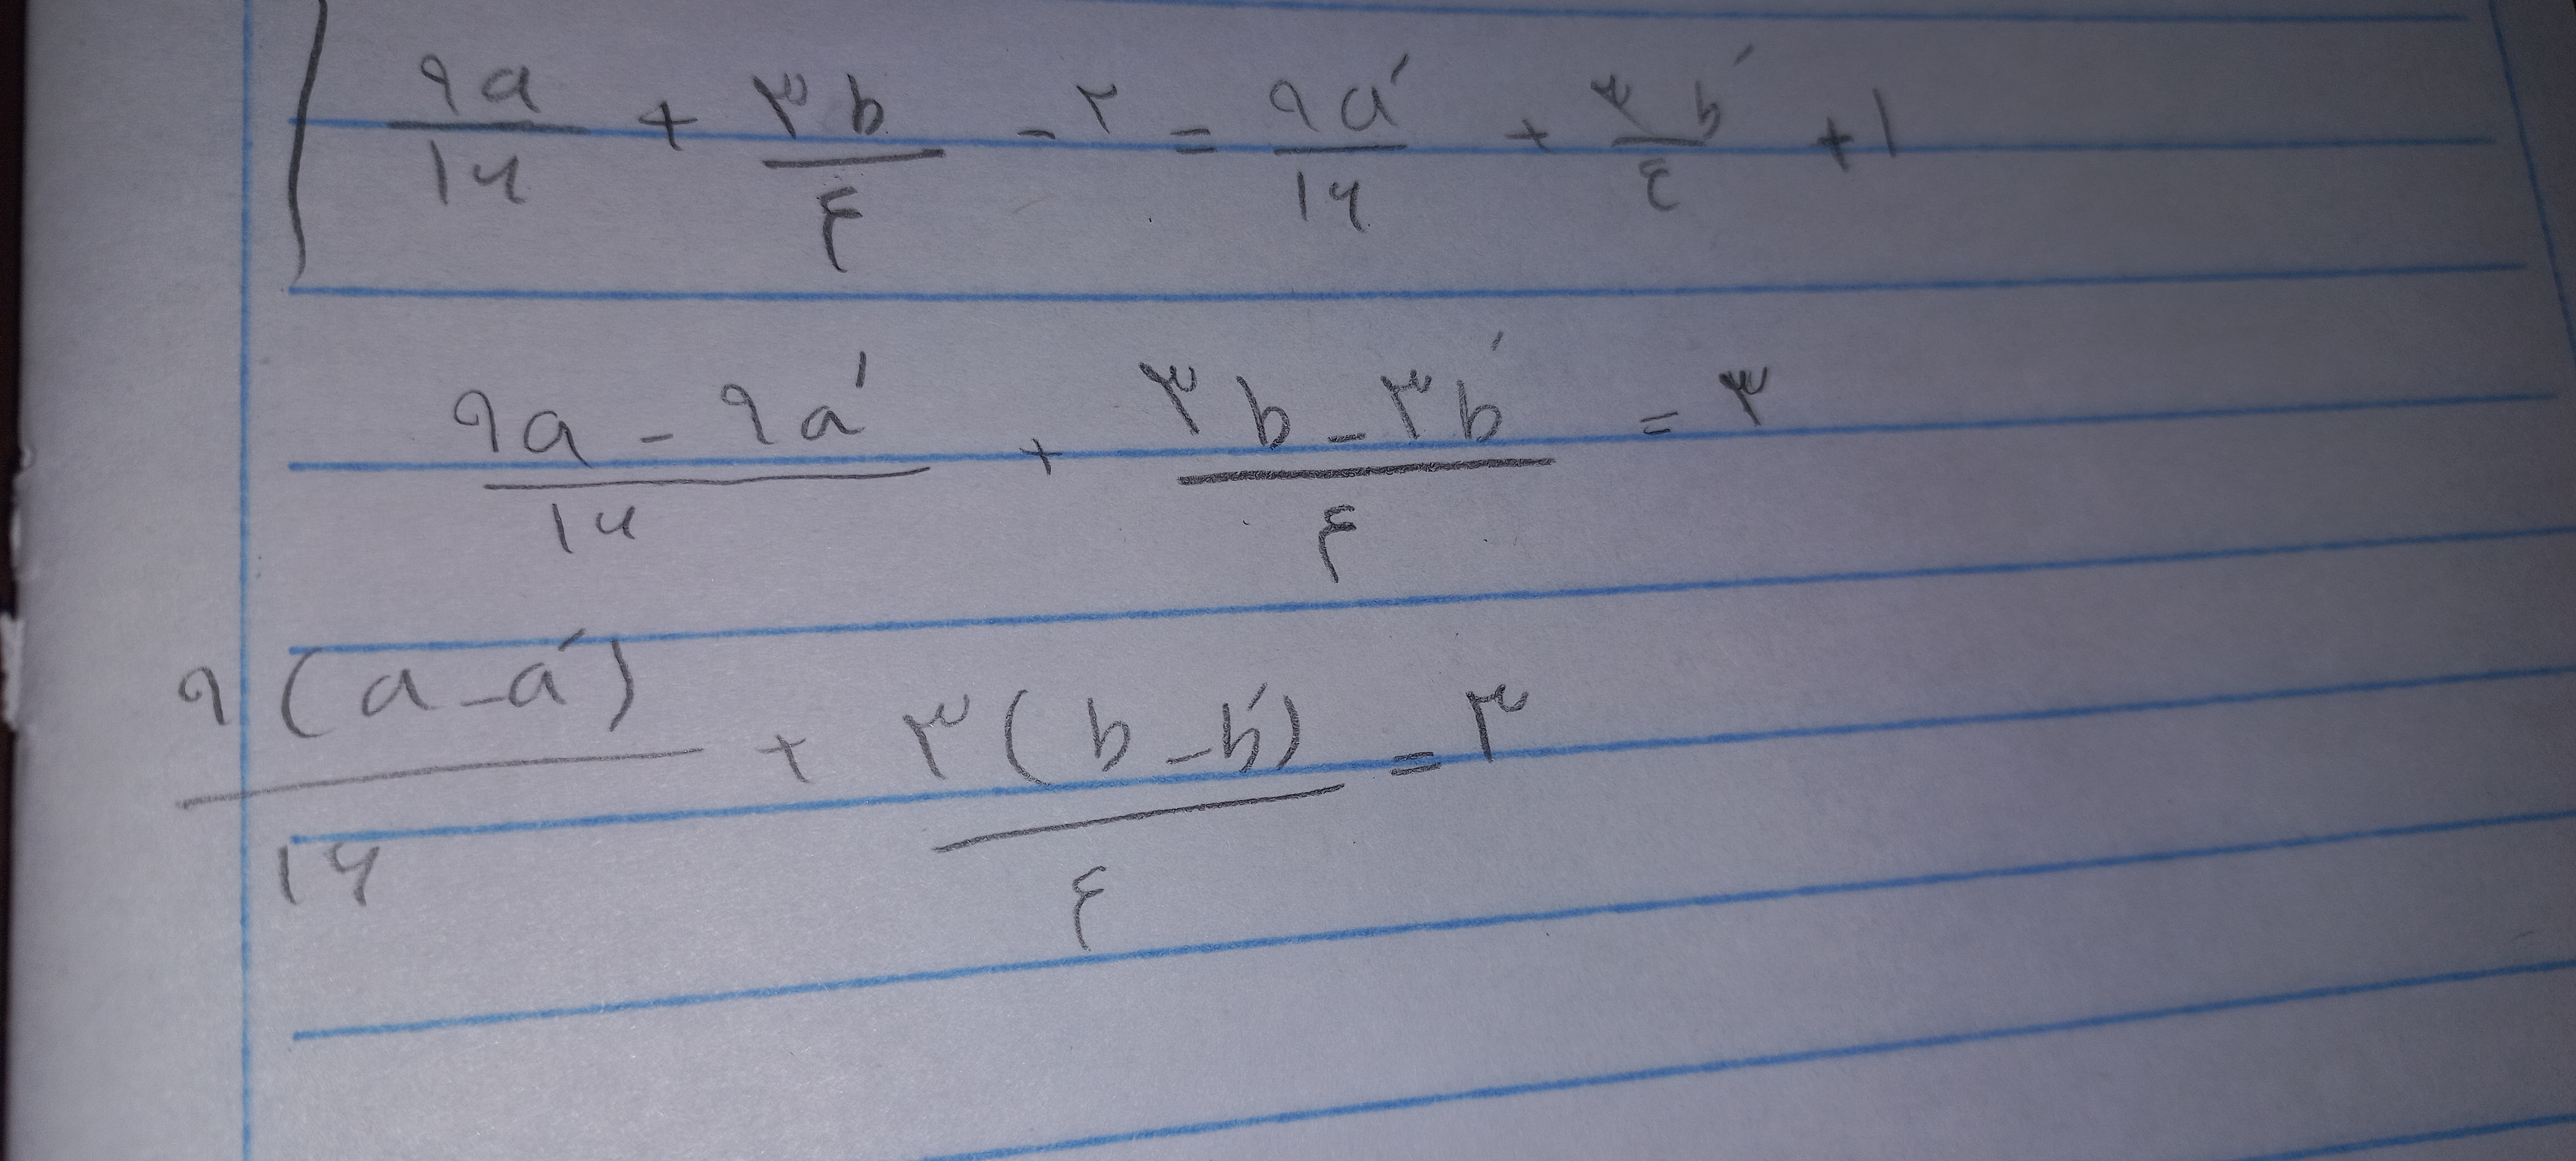 ۹a/۱۶ + ۳b/۴ - ۲ = ۹a′/۱۶ + ۳b′/۴ + ۱
(۹a - ۹a′)/۱۶ + (۳b - ۳b′)/۴ = ۳
۹(a - a′)/۱۶ + ۳(b - b′)/۴ = ۳